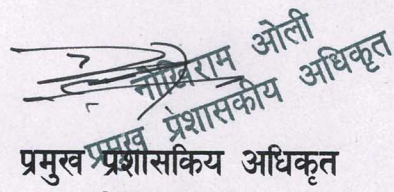 नोखिराम ओली
प्रमुख प्रशासकीय अधिकृत
प्रमुख प्रशासकिय अधिकृत